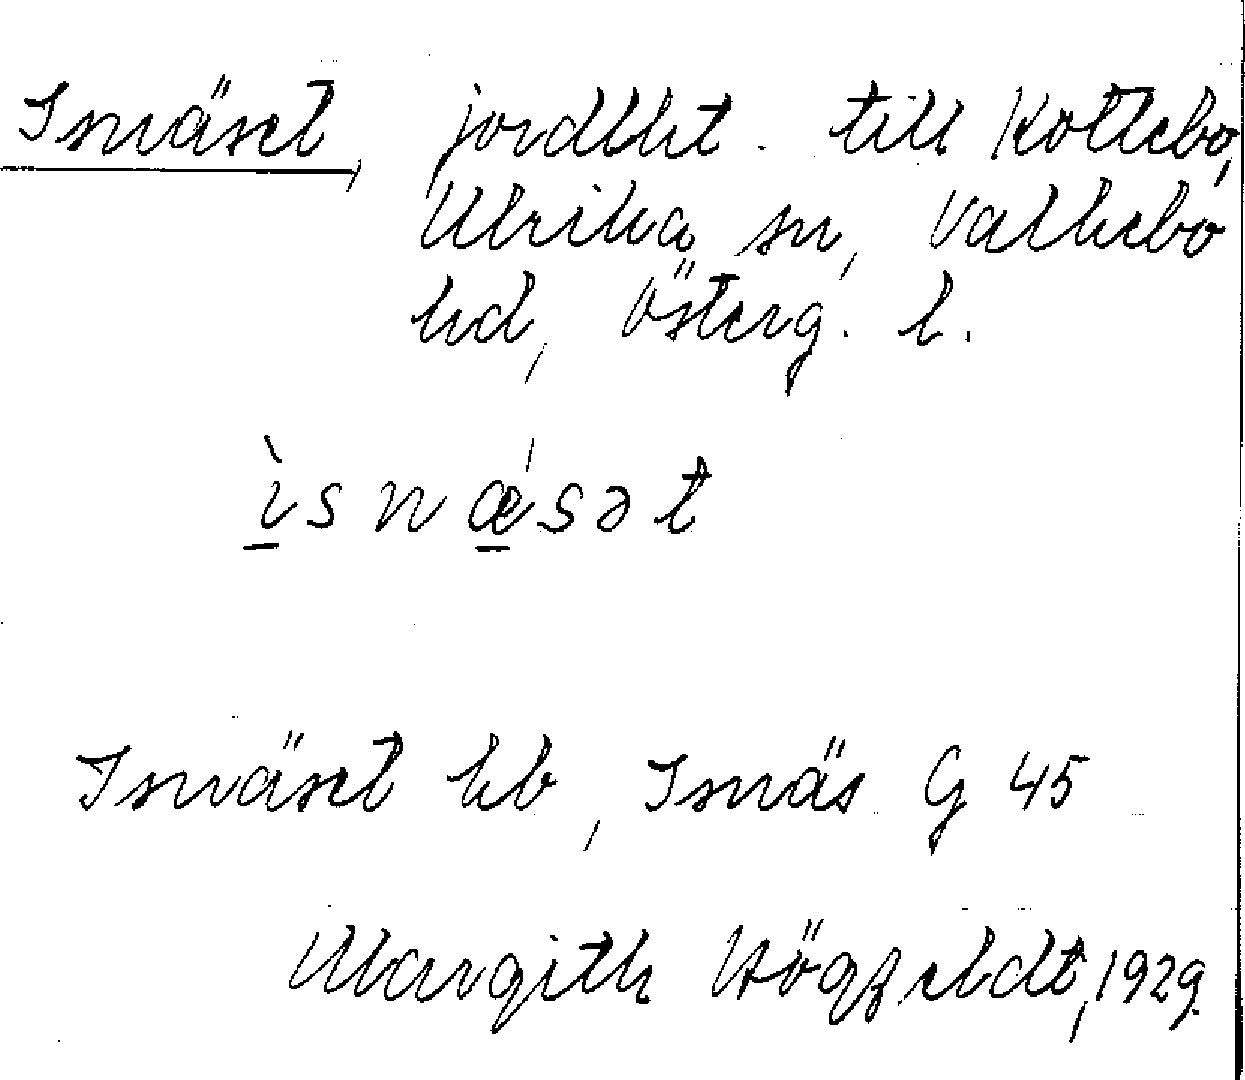 Isnäset, jordlht. till Kottebo,
Ulrika sn, Valkebo
hd, Österg. l.
ìsnǽsət
Isnäset hb, Isnäs G 45
Margith Högfeldt, 1929.